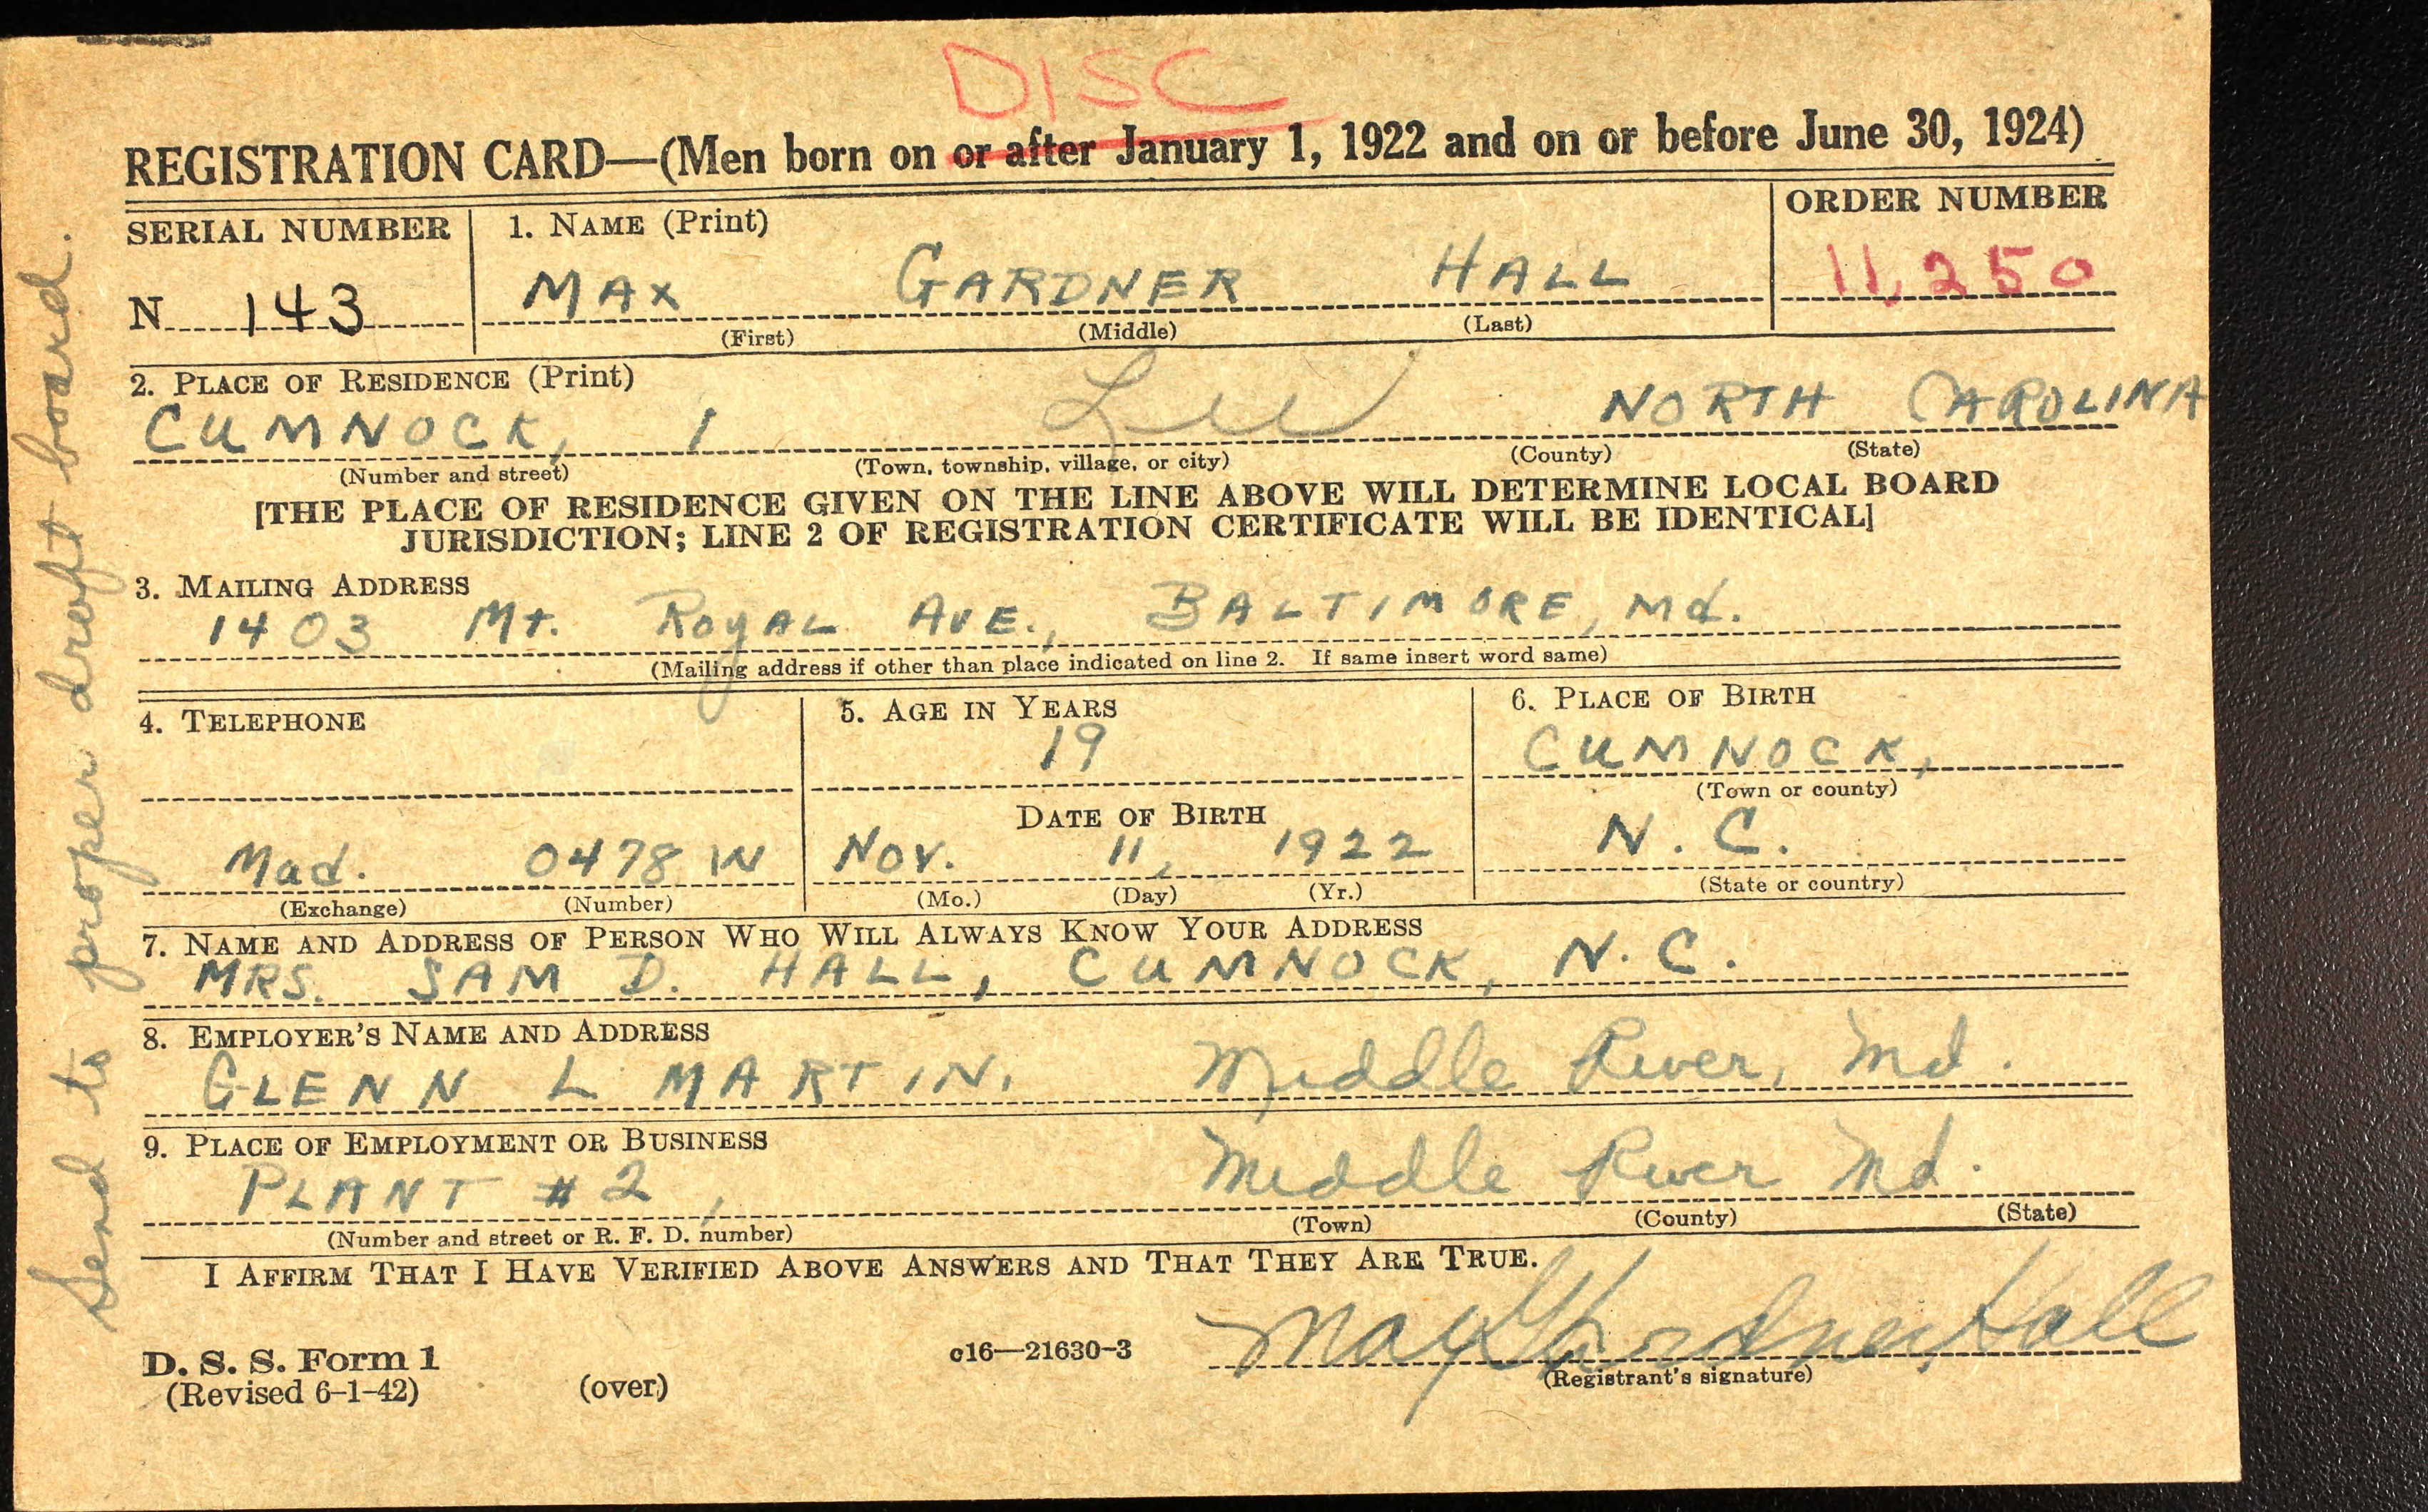 DISC
REGISTRATION CARD—(Men born on or after January 1, 1922 and on or before June 30, 1924)
SERIAL NUMBER
1. NAME (Print)
ORDER NUMBER
N 143
MAX GARDNER HALL
11,250
(First) (Middle) (Last)
2. PLACE OF RESIDENCE (Print)
CUMNOCK, 1 Lee NORTH CAROLINA
(Number and street) (Town, township, village, or city) (County) (State)
[THE PLACE OF RESIDENCE GIVEN ON THE LINE ABOVE WILL DETERMINE LOCAL BOARD
JURISDICTION; LINE 2 OF REGISTRATION CERTIFICATE WILL BE IDENTICAL]
3. MAILING ADDRESS
1403 Mt. ROYAL AVE., BALTIMORE, Md.
(Mailing address if other than place indicated on line 2. If same insert word same)
4. TELEPHONE
5. AGE IN YEARS
6. PLACE OF BIRTH
19
CUMNOCK,
(Town or county)
DATE OF BIRTH
Mad. 0478 W
Nov. 11, 1922
N. C.
(Exchange) (Number)
(Mo.) (Day) (Yr.)
(State or country)
7. NAME AND ADDRESS OF PERSON WHO WILL ALWAYS KNOW YOUR ADDRESS
MRS. SAM D. HALL, CUMNOCK, N.C.
8. EMPLOYER'S NAME AND ADDRESS
GLENN L MARTIN. Middle River, Md.
9. PLACE OF EMPLOYMENT OR BUSINESS
PLANT #2, Middle River Md.
(Number and street or R. F. D. number) (Town) (County) (State)
I AFFIRM THAT I HAVE VERIFIED ABOVE ANSWERS AND THAT THEY ARE TRUE.
D. S. S. Form 1
(Revised 6-1-42)
(over)
c16—21630-3
Max Gardner Hall
(Registrant's signature)
Send to proper draft board.